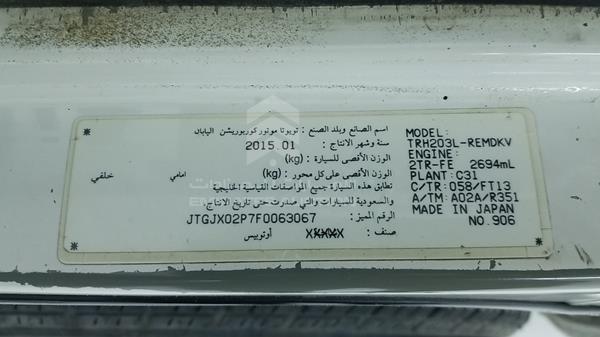 اسم الصانع وبلد الصنع : تويوتا موتور كوربوريشن اليابان
سنة وشهر الانتاج : 2015.01
الوزن الأقصى للسيارة : (kg)
الوزن الأقصى على كل محور : (kg) امامي خلفي
تطابق هذه السيارة جميع المواصفات القياسية الخليجية
والسعودية للسيارات والتي صدرت حتى تاريخ الانتاج.
الرقم المميز : JTGJX02P7F0063067
صنف : XXXXX أوتوبيس
MODEL:
TRH203L-REMDKV
ENGINE:
2TR-FE 2694mL
PLANT: C31
C/TR: 058/FT13
A/TM: A02A/R351
MADE IN JAPAN
NO. 906